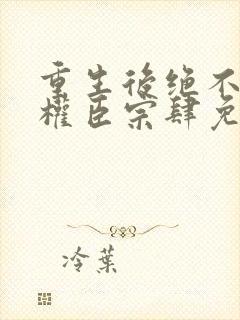 重生後绝不
權臣宗肆免
冷葉